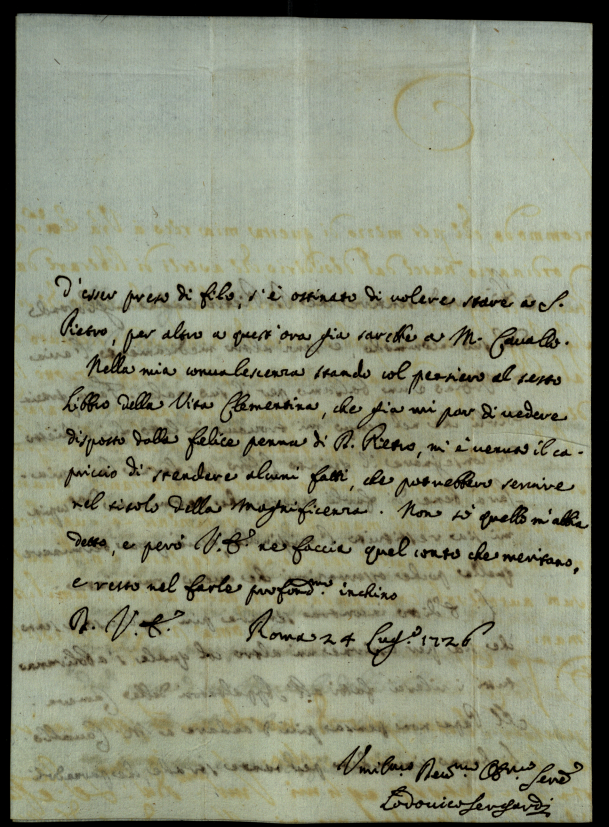 d'esser preso di filo, s'è ostinato di volere stare a S.
Pietro, per altro a quest'ora già sarebbe a M. Cavallo.
Nella mia convalescenza stando col pensiero al sesto
Libbro della Vita Clementina, che già mi par di vedere
disposto dalla felice penna di Pietro, mi è venuto il ca-
priccio di stendere alcuni fatti, che potrebbero servire
nel titolo della Magnificenza. Non sò quello m'abbia
detto, e però V. E. ne faccia quel conto che meritano,
e resto nel farle profond.mo inchino
V. E. Roma 24 Lug.o 1726
Umil.mo Dev.mo Obb.mo Serv.e
Lodovico Sergardi